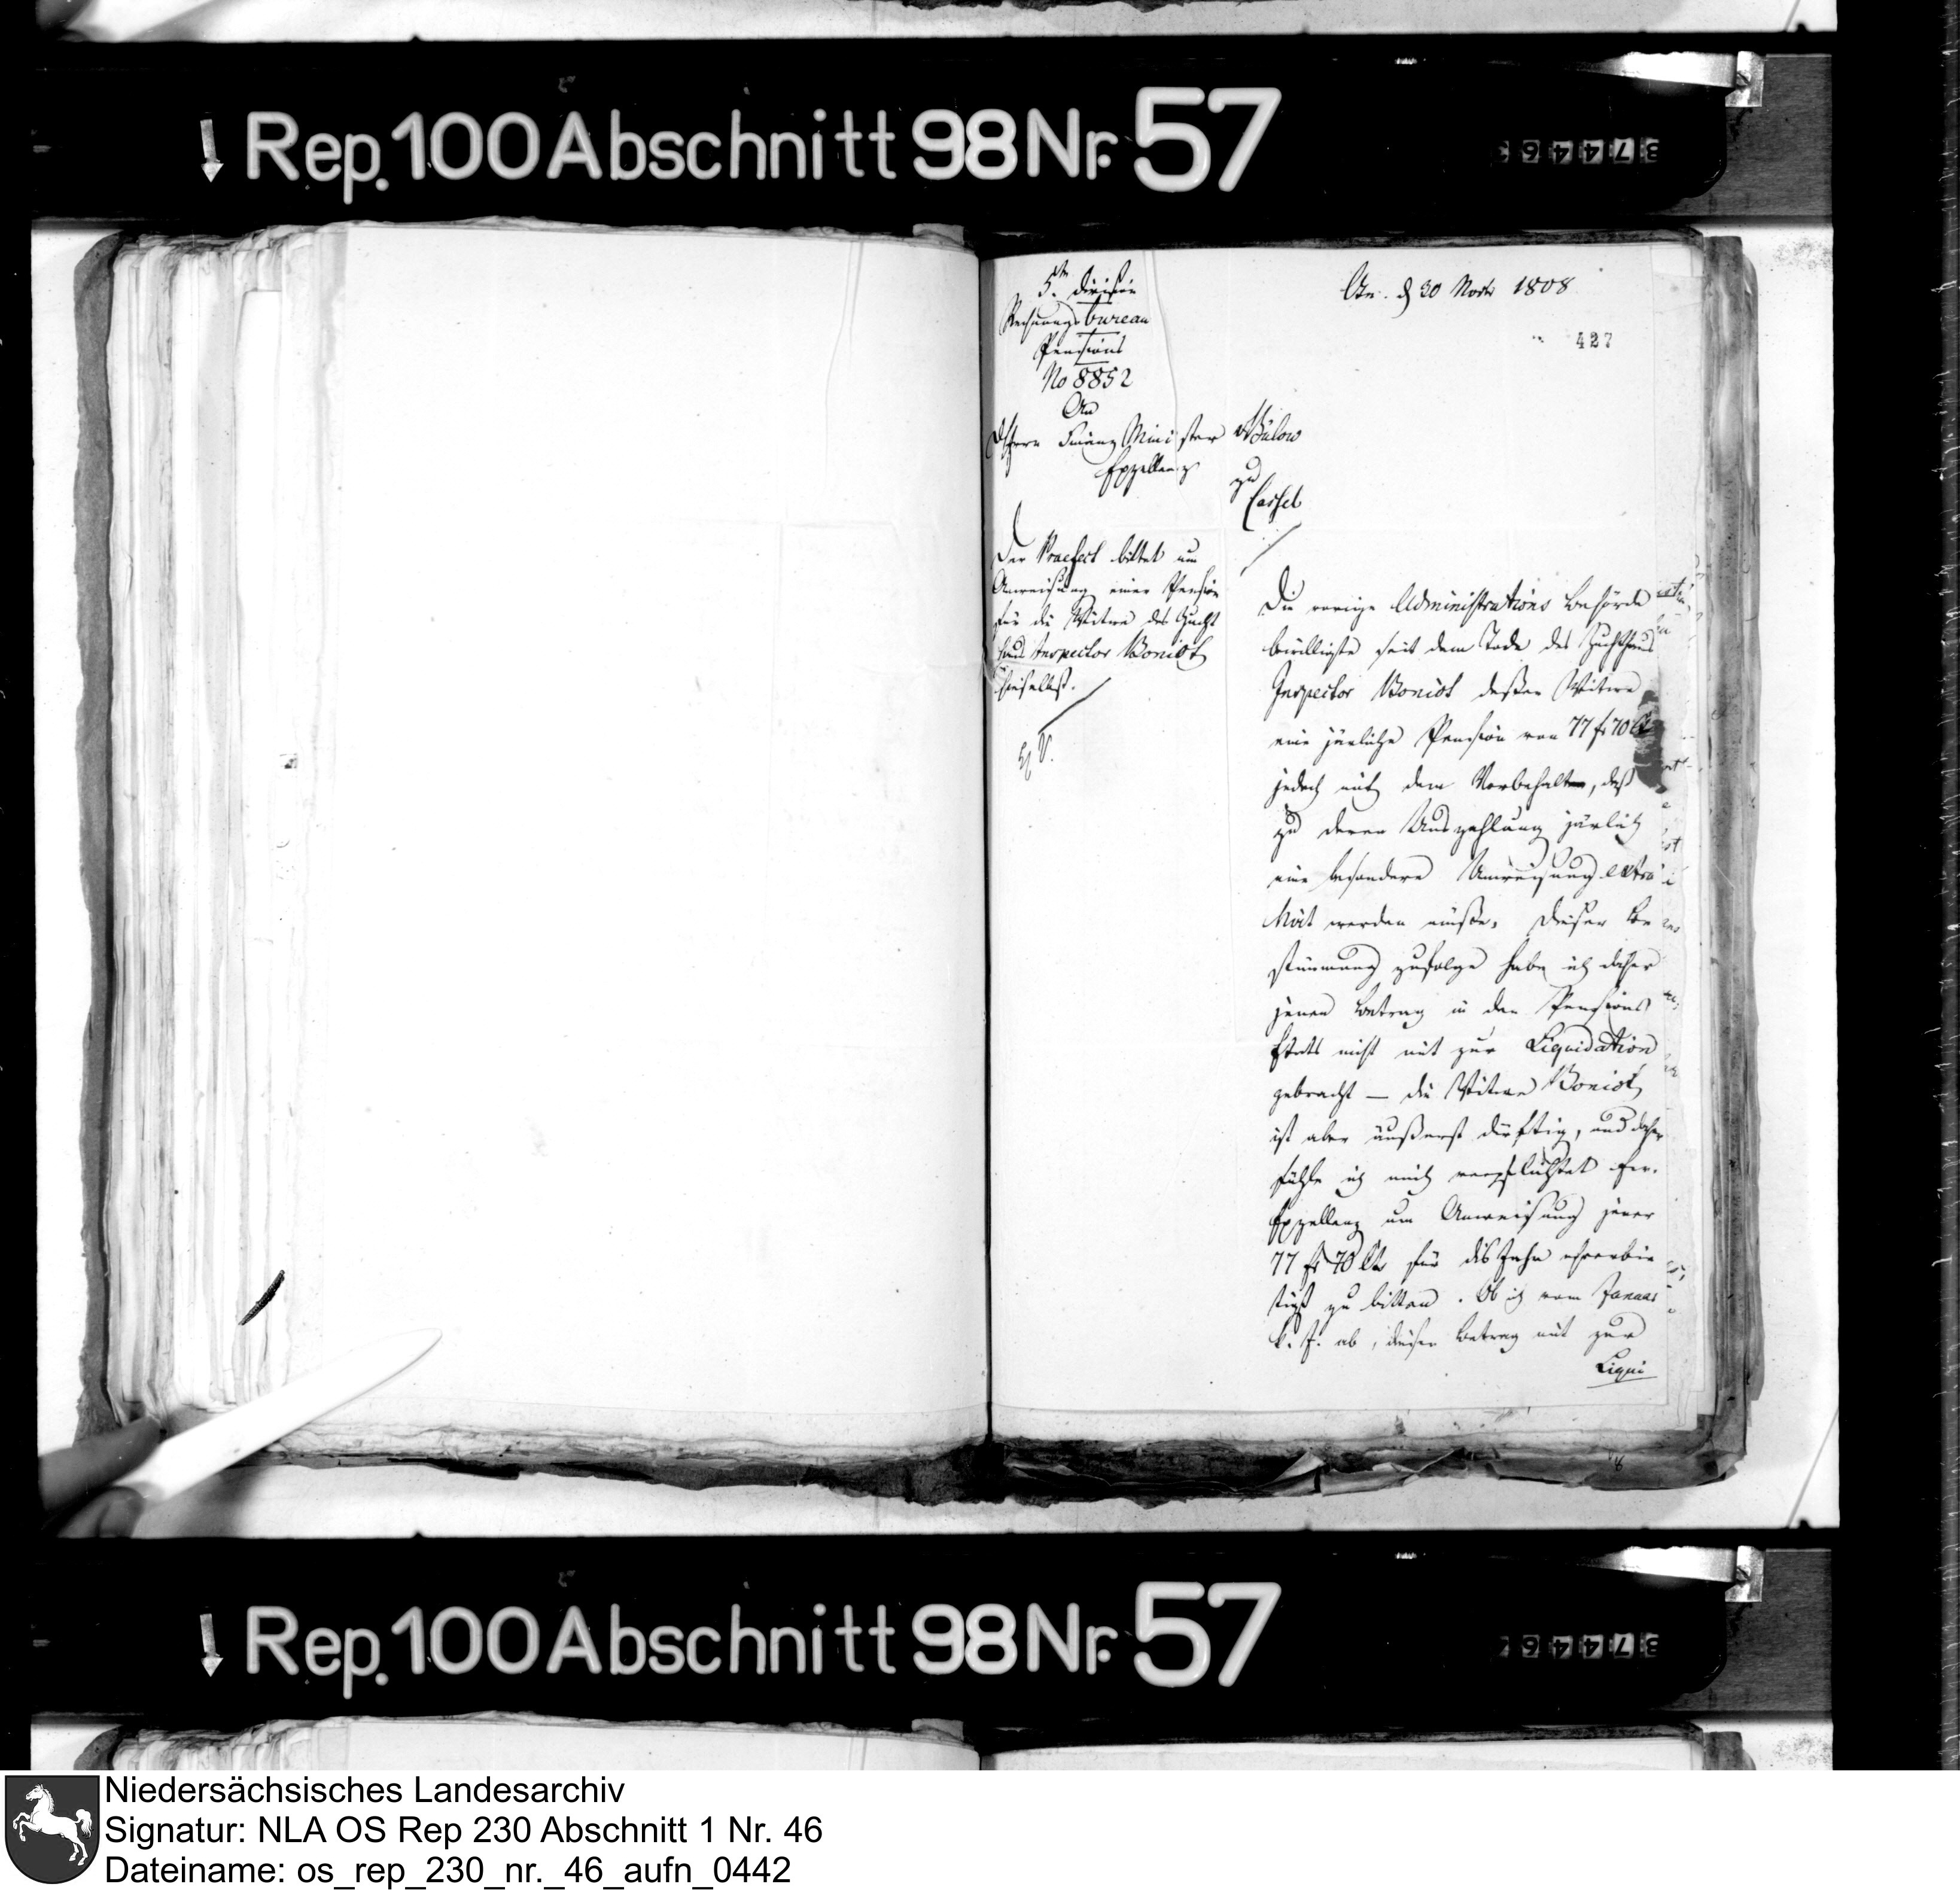 Rep. 100 Abschnitt 98 Nr. 57
37446
5te Division
Rechnungs bureau
Pensions
No 8852
An
Herrn Finanz Minister v Bülow
Exzellenz
zu
Cassel
Der Praefect bittet um
Anweisung einer Pension
für die Witwe des Zucht
haus Inspector Boniot
hieselbst.
Osn. d 30 Novbr 1808
427
Die vorige Administrations Behörde
bewilligte seit dem Tode des Zuchthaus
Inspector Boniot deßen Witwe
eine järliche Pension von 77 fr 70 Ct
jedoch mit dem Vorbehalt, daß
zu deren Auszahlung järlich
eine besondere Anweisung extra
hirt werden müße. Dieser Be
stimmung zufolge habe ich daher
jenen Betrag in den Pensions
Etats nicht mit zur Liquidation
gebracht — die Witwe Boniot
ist aber äußerst dürftig, und daher
fühle ich mich verpflichtet Ew.
Exzellenz um Anweisung jener
77 fr 70 Ct für dis Jahr ehrerbie
tigst zu bitten. Ob ich vom Januar
k. J. ab, diesen Betrag mit zur
Liqui
Rep. 100 Abschnitt 98 Nr. 57
37446
Niedersächsisches Landesarchiv
Signatur: NLA OS Rep 230 Abschnitt 1 Nr. 46
Dateiname: os_rep_230_nr._46_aufn_0442